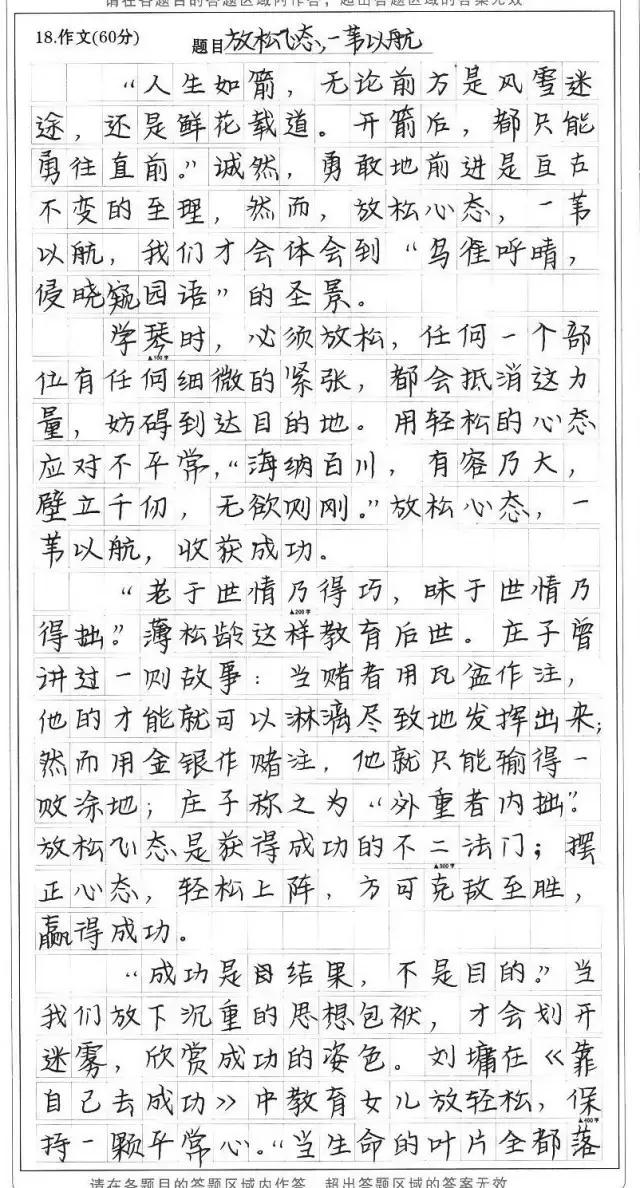 请在各题目的答题区域内作答，超出答题区域的答案无效
18.作文(60分) 题目 放松心态，一苇以航
“人生如箭，无论前方是风雪迷
途，还是鲜花载道。开箭后，都只能
勇往直前。”诚然，勇敢地前进是亘古
不变的至理，然而，放松心态，一苇
以航，我们才会体会到“鸟雀呼晴，
侵晓窥园语”的圣景。
学琴时，必须放松，任何一个部
▲100字
位有任何细微的紧张，都会抵消这力
量，妨碍到达目的地。用轻松的心态
应对不平常，“海纳百川，有容乃大，
壁立千仞，无欲则刚。”放松心态，一
苇以航，收获成功。
“老于世情乃得巧，昧于世情乃
▲200字
得拙。”薄松龄这样教育后世。庄子曾
讲过一则故事：当赌者用瓦盆作注，
他的才能就可以淋漓尽致地发挥出来；
然而用金银作赌注，他就只能输得一
败涂地；庄子称之为“外重者内拙”。
放松心态是获得成功的不二法门；摆
▲300字
正心态，轻松上阵，方可克敌至胜，
赢得成功。
“成功是结果，不是目的。”当
我们放下沉重的思想包袱，才会划开
迷雾，欣赏成功的姿色。刘墉在《靠
自己去成功》中教育女儿放轻松，保
▲400字
持一颗平常心。“当生命的叶片全都落
请在各题目的答题区域内作答，超出答题区域的答案无效